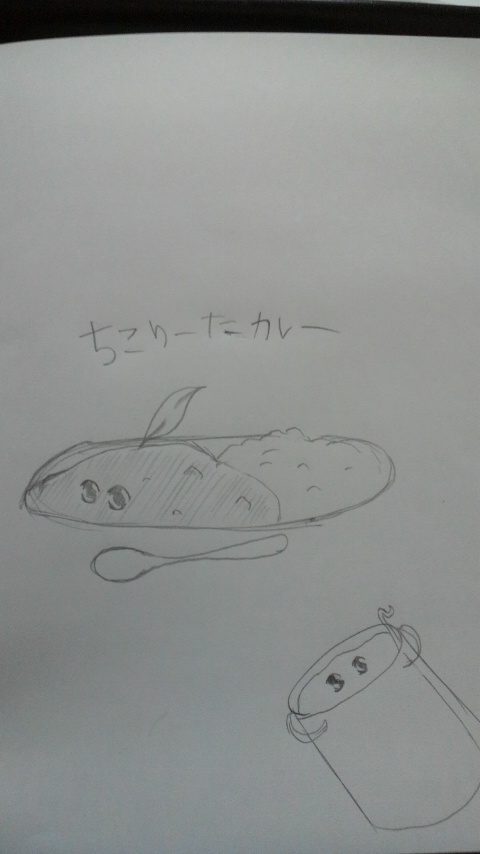 ちこりーたカレー